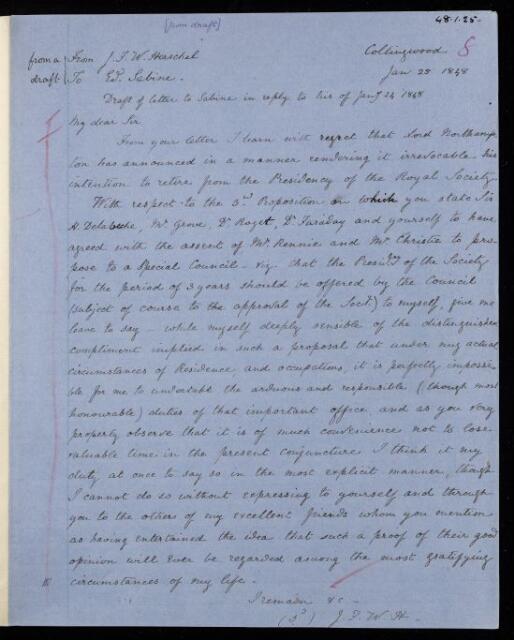 [from draft]
48.1.25.
from a draft
From J. F. W. Herschel
Collingwood
To Ed. Sabine.
Jan 25 1848
Draft of letter to Sabine in reply to his of Jany 24 1848
My dear Sir
From your letter I learn with regret that Lord Northamp-
ton has announced in a manner rendering it irrevocable his
intention to retire from the Presidency of the Royal Society
With respect to the 3d Proposition on which you state Sir
H. Delabeche, Mr. Grove, Dr. Roget, Dr. Faraday and yourself to have
agreed with the assent of Mr. Rennie and Mr. Christie to pro-
pose to a Special Council - viz. that the Presidcy of the Society
for the period of 3 years should be offered by the Council
(subject of course to the approval of the Socy) to myself, give me
leave to say - while myself deeply sensible of the distinguished
compliment implied in such a proposal that under my actual
circumstances of Residence and occupations, it is perfectly impossi-
ble for me to undertake the arduous and responsible (though most
honourable) duties of that important office, and as you very
properly observe that it is of much convenience not to lose
valuable time in the present conjuncture I think it my
duty at once to say so in the most explicit manner, though
I cannot do so without expressing to yourself and through
you to the others of my excellent friends whom you mention
as having entertained the idea that such a proof of their good
opinion will ever be regarded among the most gratifying
circumstances of my life.
I remain &c -
J. F. W. H.